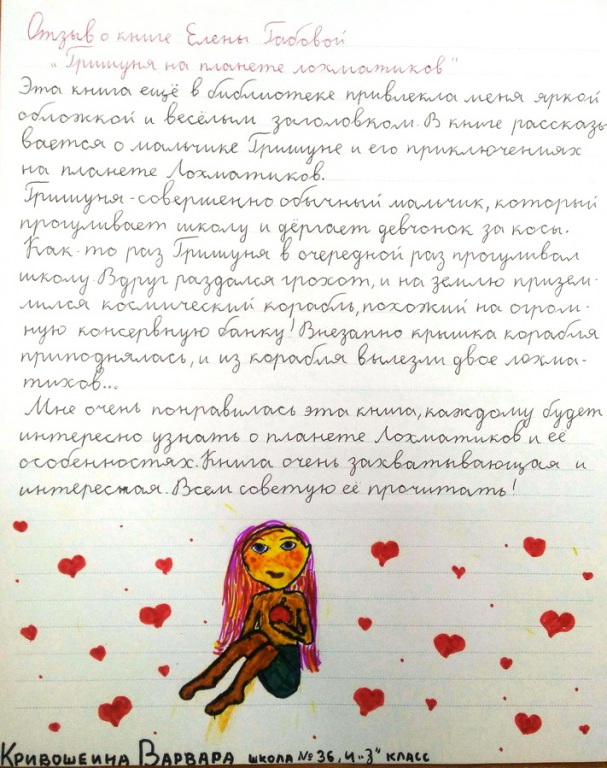 Отзыв о книге Елены Габовой
"Гришуня на планете лохматиков"
Эта книга ещё в библиотеке привлекла меня яркой
обложкой и весёлым заголовком. В книге рассказы-
вается о мальчике Гришуне и его приключениях
на планете Лохматиков.
Гришуня-совершенно обычный мальчик, который
прогуливает школу и дёргает девчонок за косы.
Как-то раз Гришуня в очередной раз прогуливал
школу. Вдруг раздался грохот, и на землю призем-
лился космический корабль, похожий на огром-
ную консервную банку! Внезапно крышка корабля
приподнялась, и из корабля вылезли двое лохма-
тиков...
Мне очень понравилась эта книга, каждому будет
интересно узнать о планете Лохматиков и её
особенностях. Книга очень захватывающая и
интересная. Всем советую её прочитать!
Кривошеина Варвара школа №36, 4 "З" класс